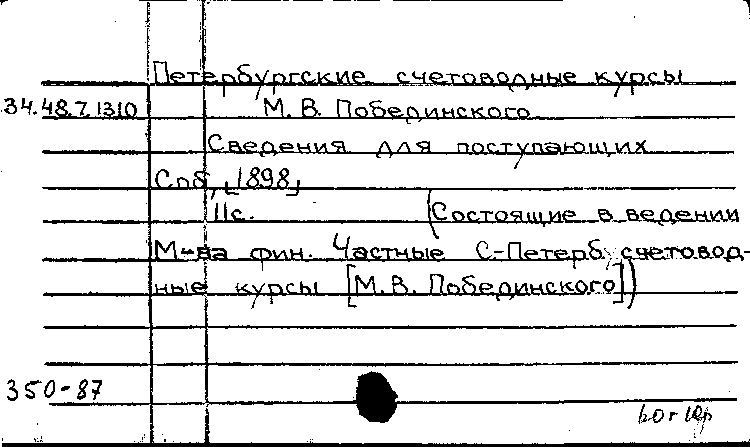 Петербургские счетоводные курсы
34.48.7.1310 М. В. Побединского
Сведения для поступающих
Спб, [1898]
11с. (Состоящие в ведении
М-ва фин. Частные С-Петерб. счетовод-
ные курсы [М. В. Побединского])
350-87